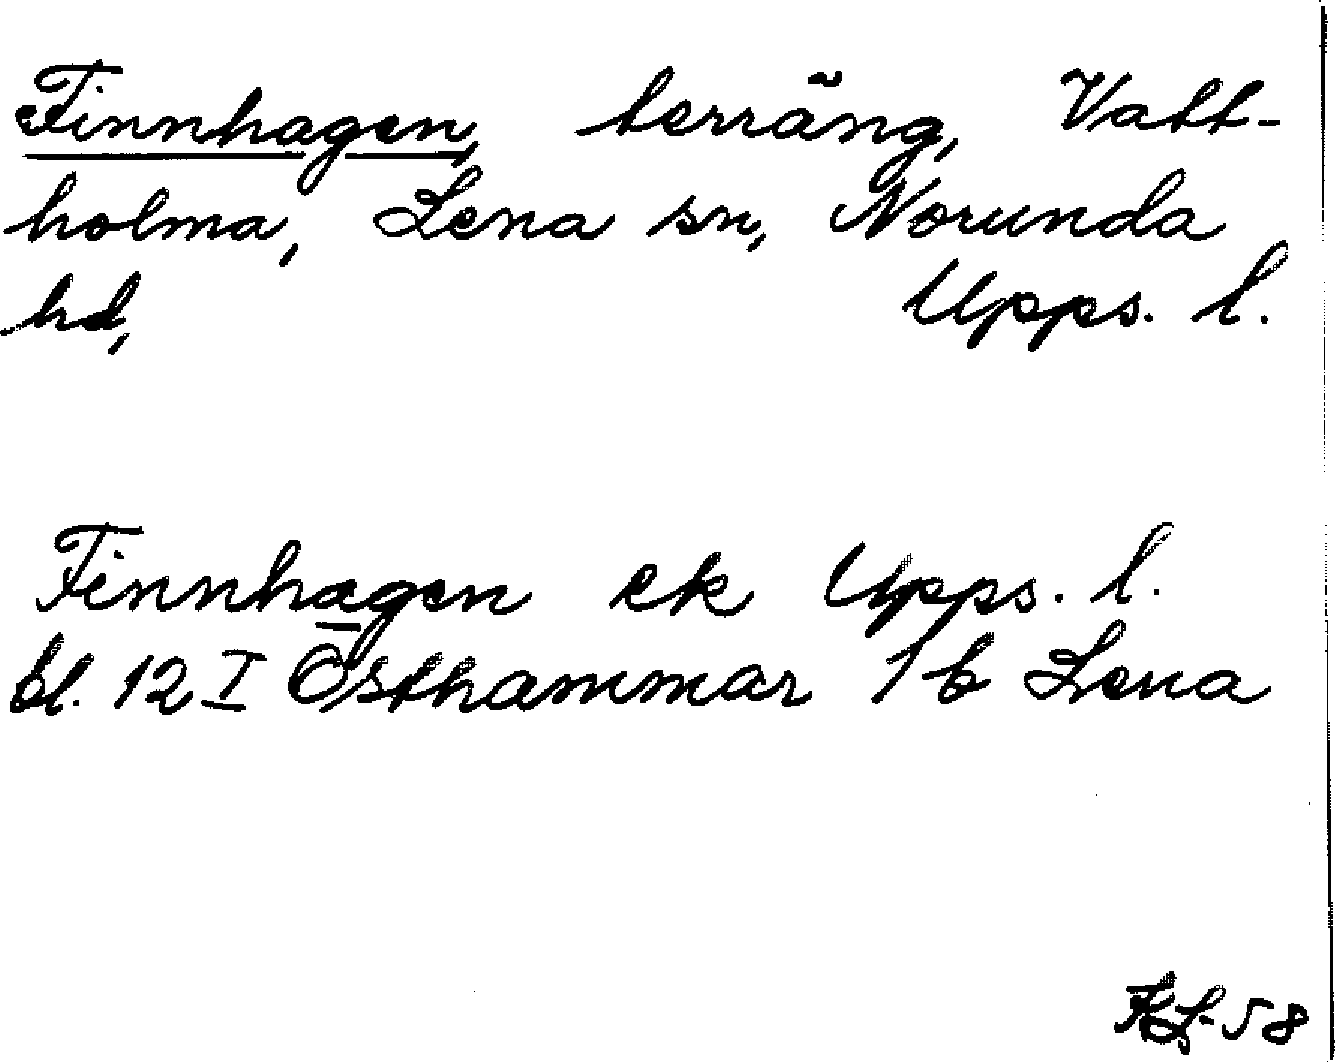 Finnhagen, terräng, Vatt-
holma, Lena sn, Norunda
hd, Upps. l.
Finnhagen ek Upps. l.
bl. 12 I Östhammar 1 b Lena
-58